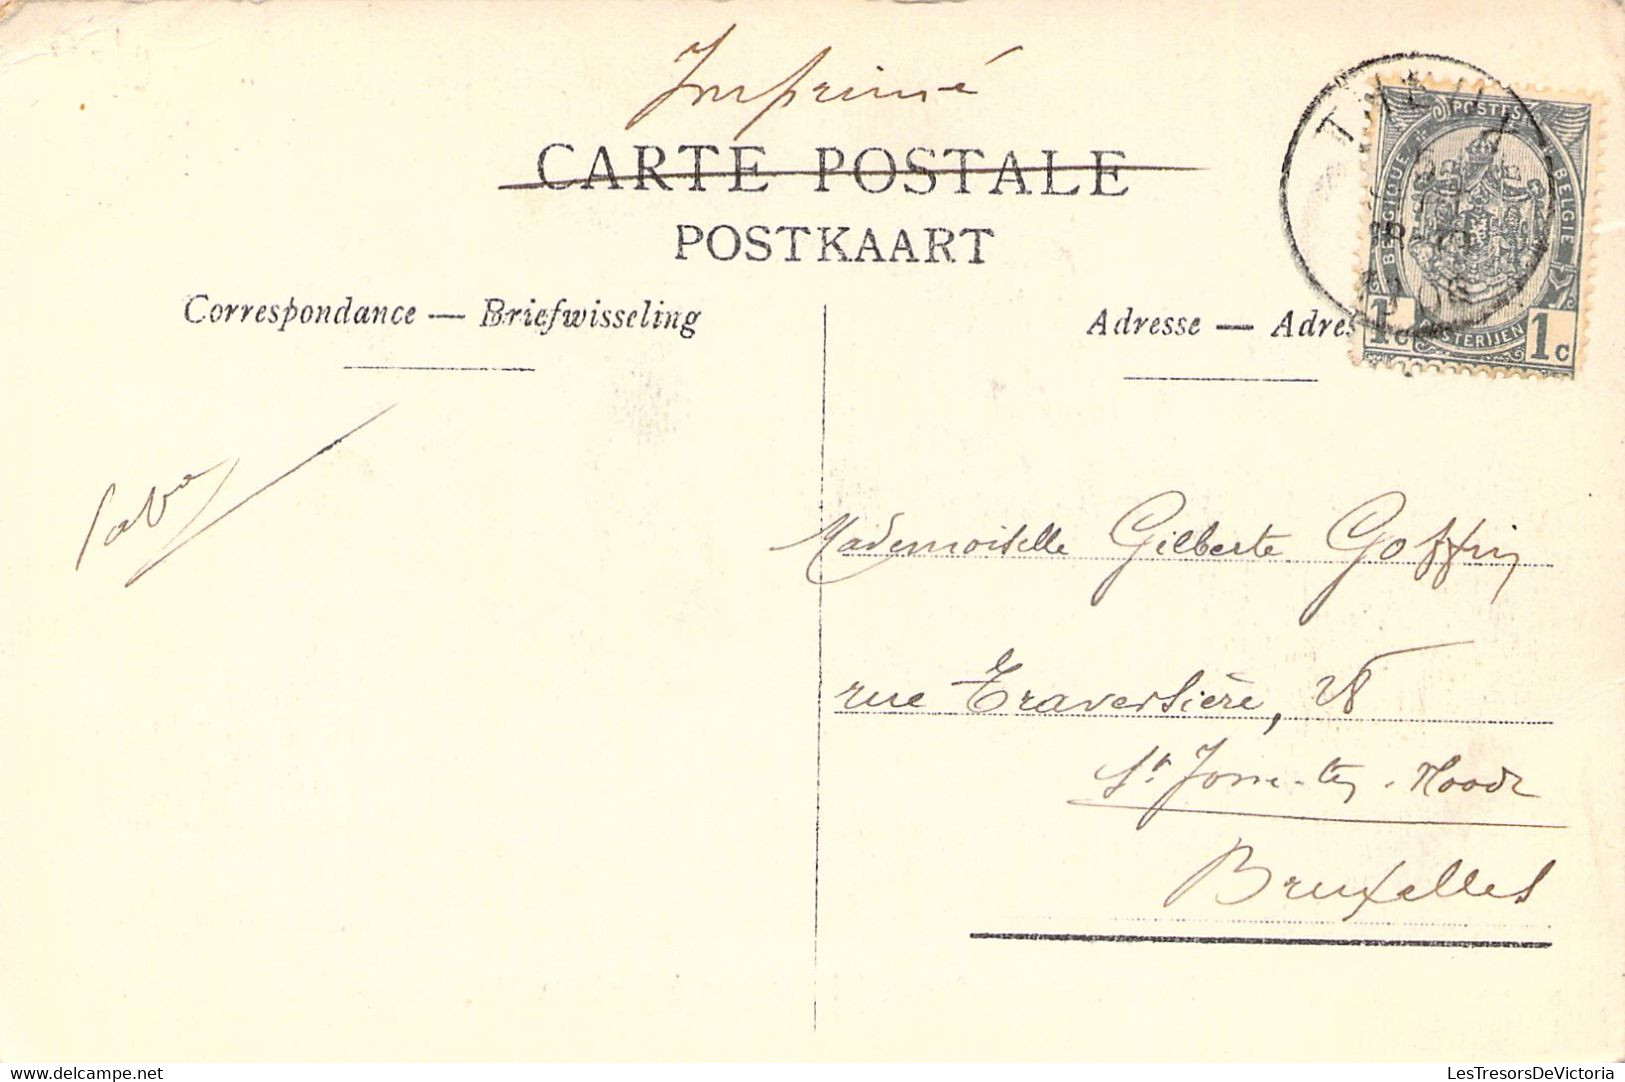 Imprimé
CARTE POSTALE
POSTKAART
Correspondance — Briefwisseling
Adresse — Adres
POSTES
BELGIQUE
BELGIE
1c
1c
Mademoiselle Gilberte Goffin
rue Traversière, 28
St. Josse-ten-Noode
Bruxelles
LesTresorsDeVictoria
delcampe.net